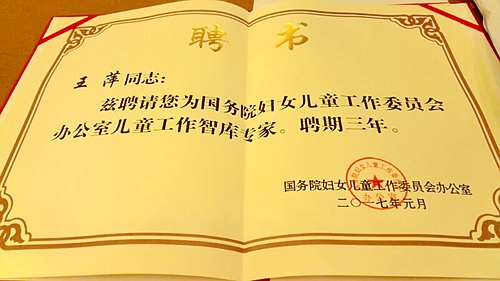 聘 书
王 萍同志：
兹聘请您为国务院妇女儿童工作委员会
办公室儿童工作智库专家。聘期三年。
国务院妇女儿童工作委员会办公室
二〇一七年元月